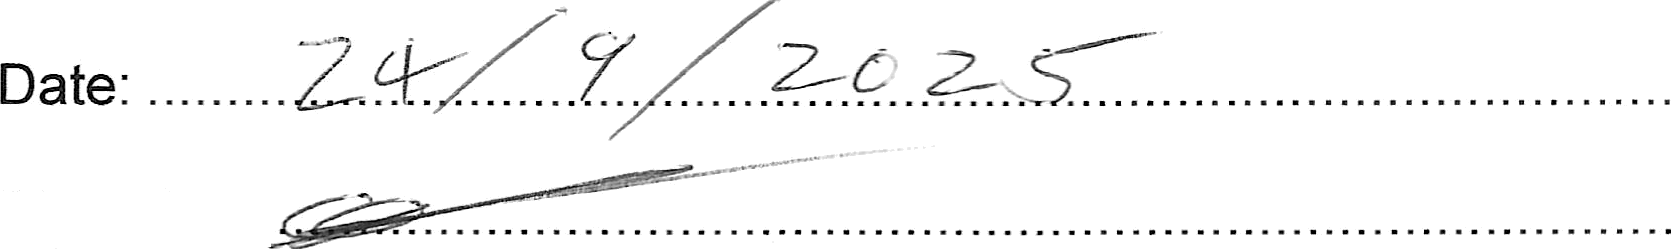 Date: 24/9/2025